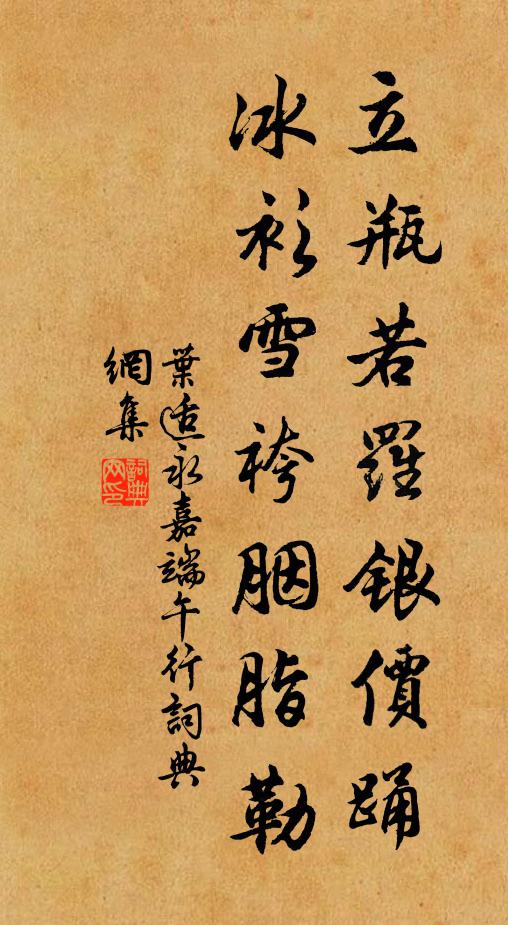 立瓶若羅銀價踊
冰衫雪袴胭脂勒
葉适永嘉端午行詞典
網集
詞典網印